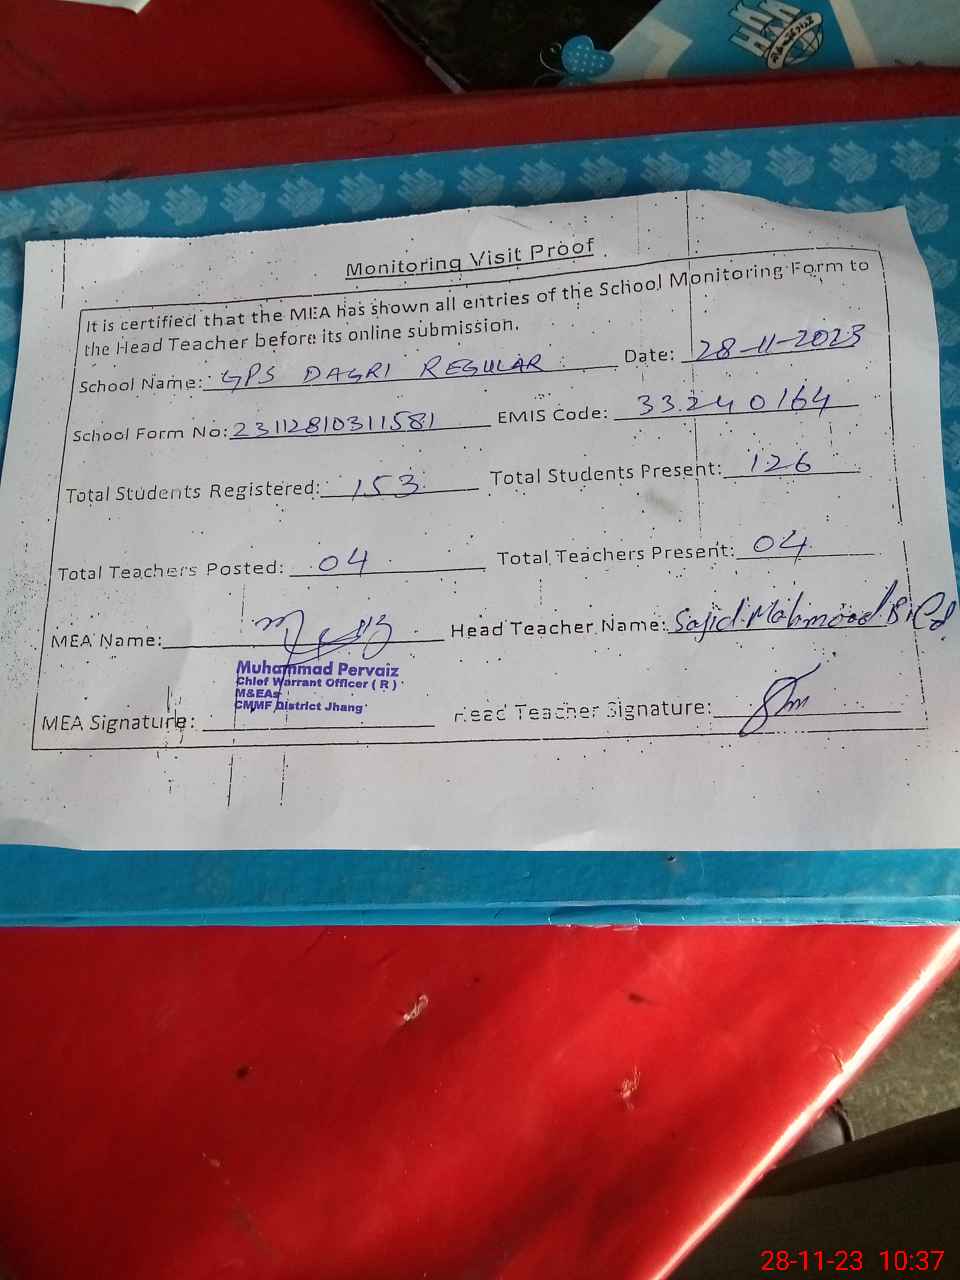 Monitoring Visit Proof
It is certified that the MEA has shown all entries of the School Monitoring Form to
the Head Teacher before its online submission.
School Name: GPS DAGRI REGULAR Date: 28-11-2023
School Form No: 23112810311581 EMIS Code: 33240164
Total Students Registered: 153 Total Students Present: 126
Total Teachers Posted: 04 Total Teachers Present: 04
MEA Name: Head Teacher Name: Sajid Mahmood B.Ed
Muhammad Pervaiz
Chief Warrant Officer ( R )
M&EAs
CMMF District Jhang
MEA Signature: Head Teacher Signature:
28-11-23 10:37